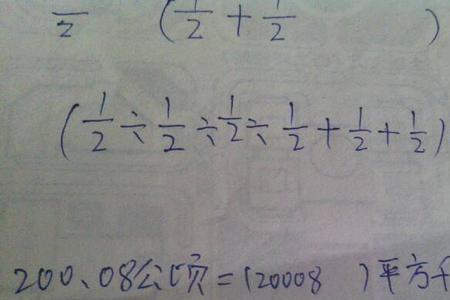 2 (1/2 + 1/2 )
(1/2 ÷ 1/2 ÷ 1/2 ÷ 1/2 + 1/2 + 1/2)
200.08公顷=(20008 )平方